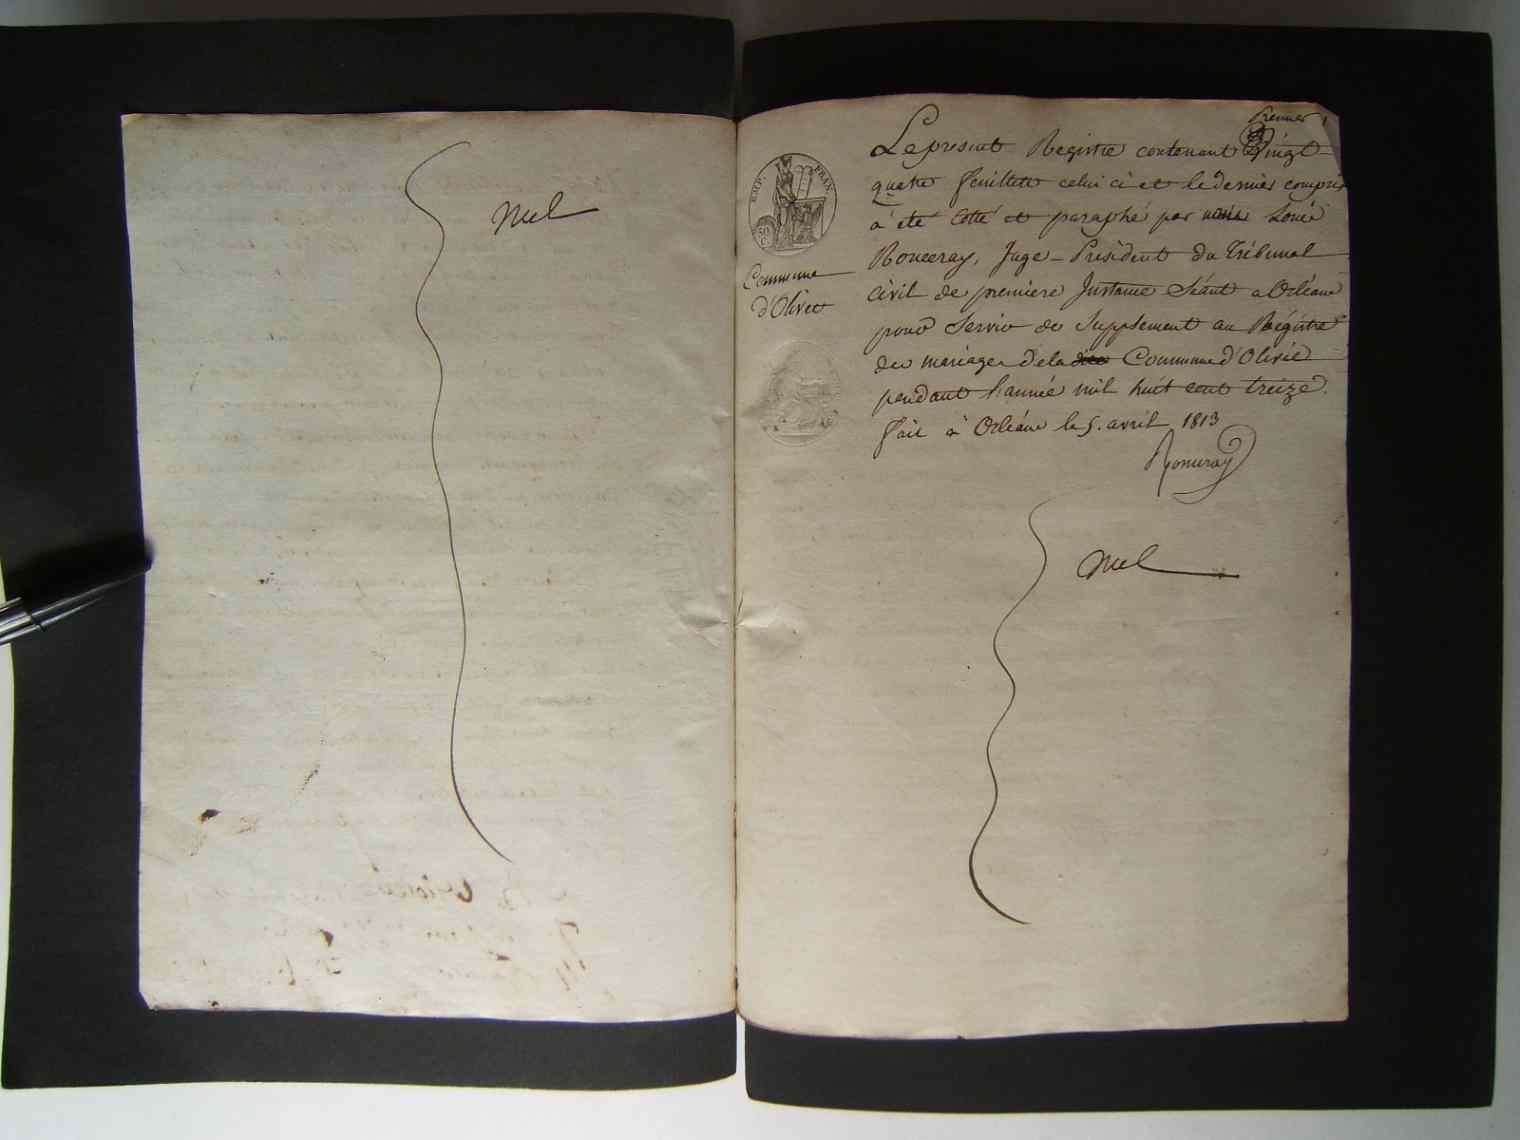 nul
Premier
Le present Registre contenant Vingt
quatre feuillets celui ci et le dernier compris
à été Cotté et paraphé par nous Louis
Ronceray, Juge-Président du Tribunal
civil de premiere Instance Séant a Orléans
pour Servir de Supplement au Régistre
des mariages de la Commune d'Olivet
pendant l'année mil huit cent treize.
fait à Orléans le 5. avril 1813
Ronceray
EMP. FRAN.
50 C.
Commune
d'Olivet
nul